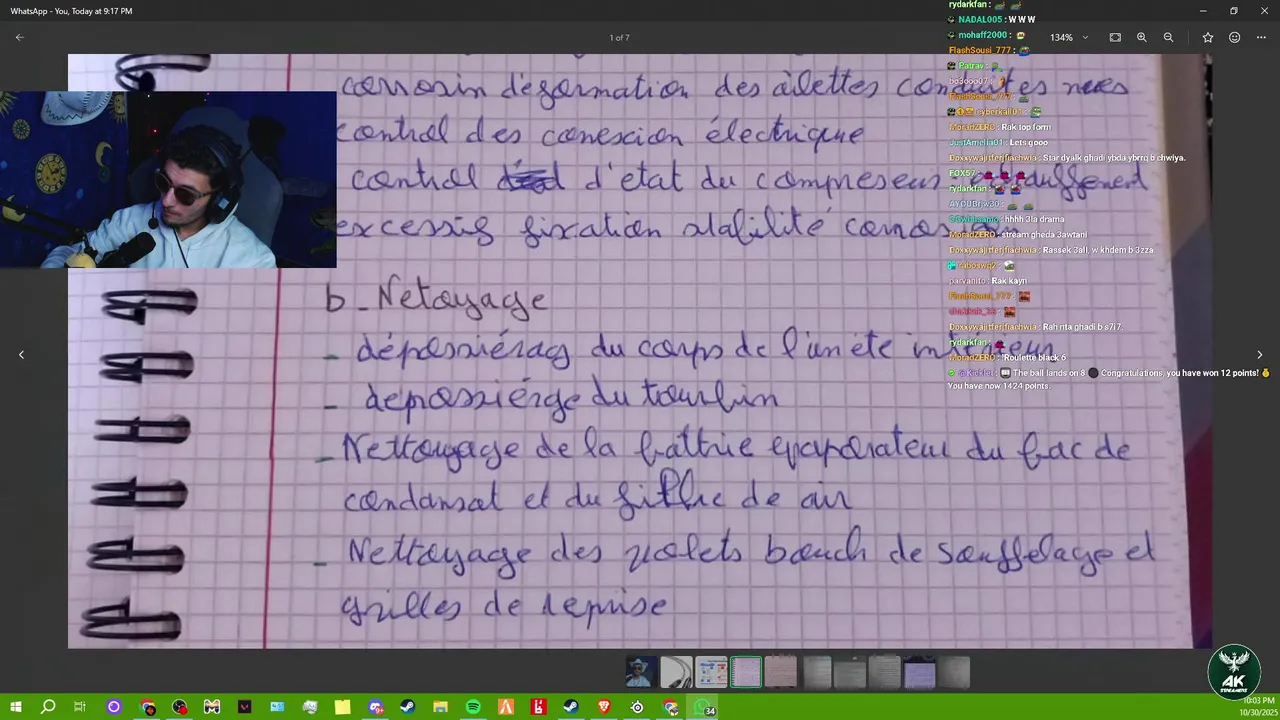 WhatsApp - You, Today at 9:17 PM
1 of 7
134%
corrosin déformation des ailettes conduites
control des conexcion électrique
control d'etat du compreseur
excessif fixation stabilité
b - Netoyage
- du corps de l'unété
- du tourbin
- Nettoyage de la battrie evaporateur du bac de
condansat et du filthre de air
- Nettoyage des volets bouch de soufflage et
grilles de reprise
rydarkfan :
NADAL005 : W W W
mohaff2000 :
FlashSousi_777 :
Patrav :
FlashSousi_777 :
cyberkali01 :
MoradZERO : Rak top form
JustAmelia01 : Lets gooo
Doxxywajitferifiachwia : Star dyalk ghadi ybda ybrrq b chwiya.
FOX57 :
rydarkfan :
hhhh 3la drama
MoradZERO : stream gheda 3awtani
Doxxywajitferifiachwia : Rassek 3all, w khdem b 3zza
raboswq2 :
parvanito : Rak kayn
FlashSousi_777 :
Doxxywajitferifiachwia : Rah nta ghadi b s7i7
rydarkfan :
MoradZERO : "Roulette black 6
The ball lands on 8 Congratulations, you have won 12 points!
You have now 1424 points.
AK
STREAMERS
34
10:03 PM
10/30/2025